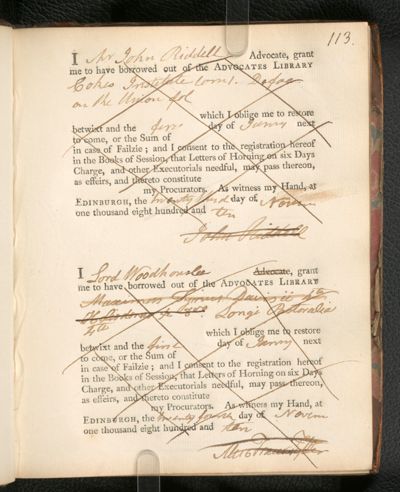 113.
I Mr John Riddell Advocate, grant
me to have borrowed out of the ADVOCATES LIBRARY
Cokes Institute tom 1. Defoe
on the Union fol
which I oblige me to restore
betwixt and the first day of Janry next
to come, or the Sum of
in case of Failzie; and I consent to the registration hereof
in the Books of Session, that Letters of Horning on six Days
Charge, and other Executorials needful, may pass thereon,
as effeirs, and thereto constitute
my Procurators. As witness my Hand, at
EDINBURGH, the twenty second day of Novem
one thousand eight hundred and ten
John Riddell
I Lord Woodhouselee Advocate, grant
me to have borrowed out of the ADVOCATES LIBRARY
Maximus Tyrius 4to
Long's Pastoralia
4to
which I oblige me to restore
betwixt and the first day of Janry next
to come, or the Sum of
in case of Failzie; and I consent to the registration hereof
in the Books of Session, that Letters of Horning on six Days
Charge, and other Executorials needful, may pass thereon,
as effeirs, and thereto constitute
my Procurators. As witness my Hand, at
EDINBURGH, the twenty day of Novem
one thousand eight hundred and ten